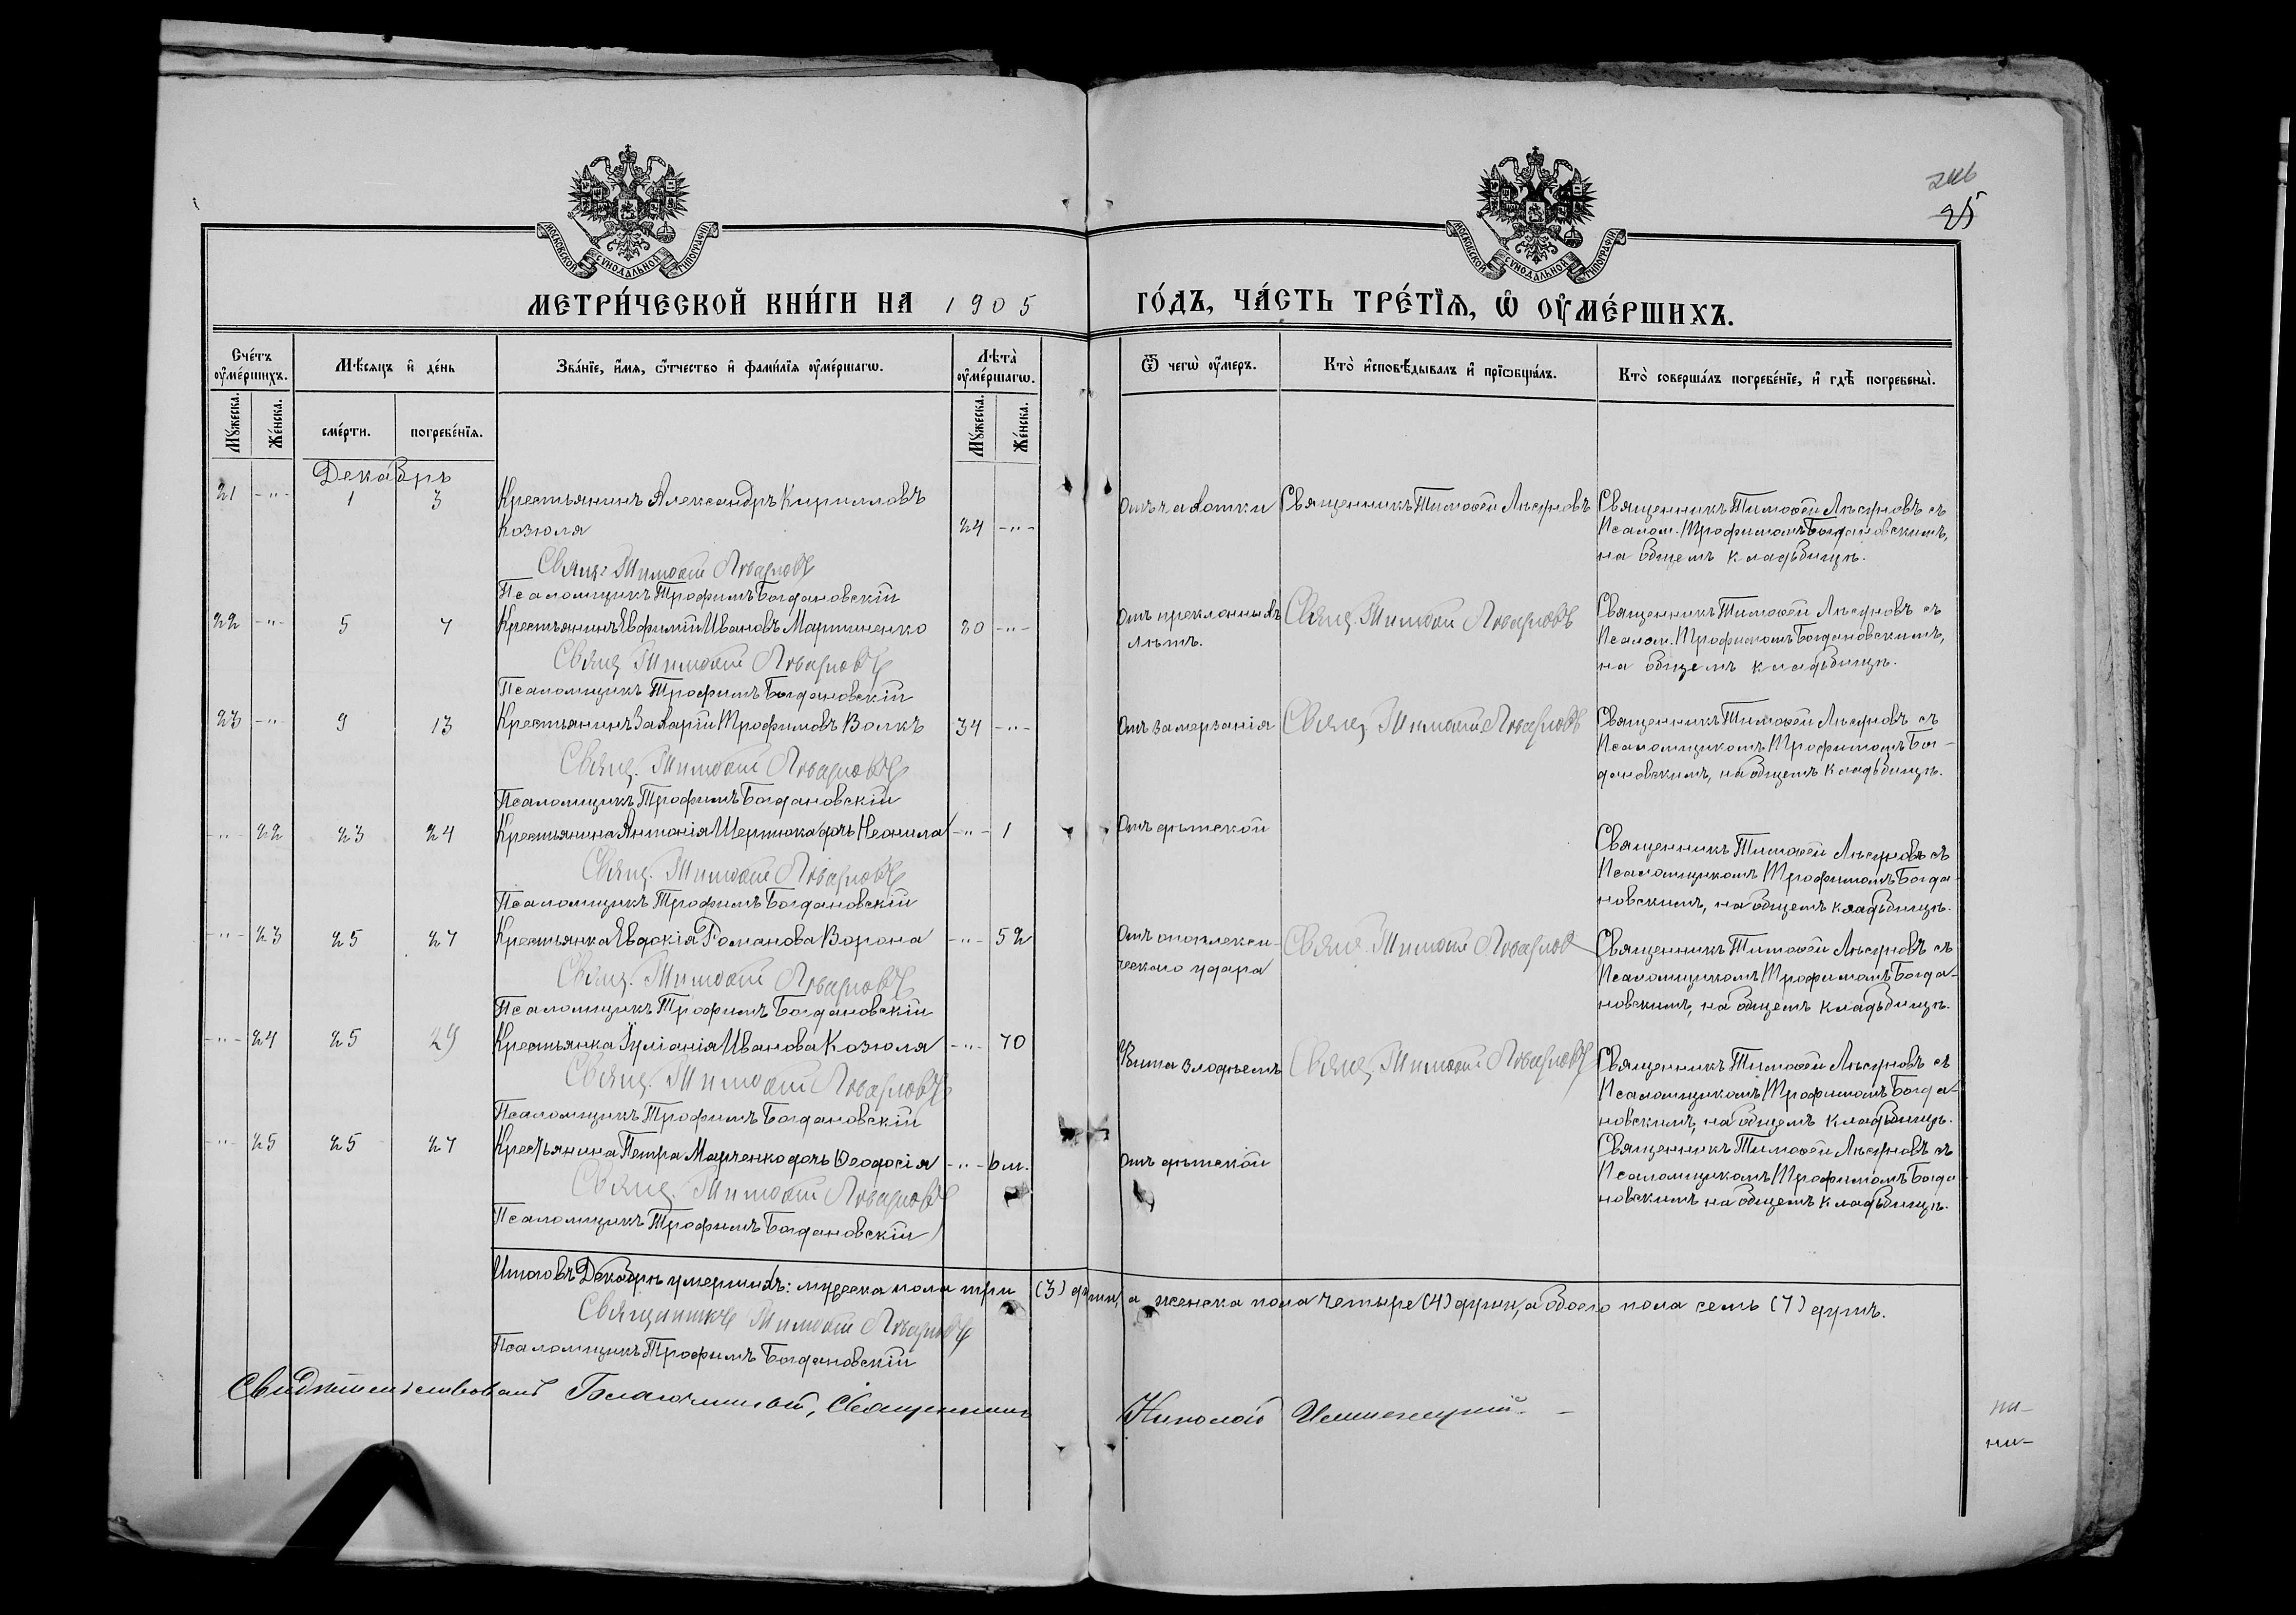 246
25
МОСКОВСКОЙ СѴНОДАЛЬНОЙ ТИПОГРАФІИ
МОСКОВСКОЙ СѴНОДАЛЬНОЙ ТИПОГРАФІИ
МЕТРИ́ЧЕСКОЙ КНИ́ГИ НА 1905 ГО́ДЪ, ЧА́СТЬ ТРЕ́ТЇѦ, Ѡ ОУ҆МЕ́РШИХЪ.
Сче́тъ оу҆ме́ршихъ.
Мѣ́сяцъ и҆ де́нь
Зва́нїе, и҆́мѧ, ѻ҆́тчество и҆ фами́лїѧ оу҆ме́ршагѡ.
Лѣта̀ оу҆ме́ршагѡ.
Ѿ чегѡ̀ оу҆́меръ.
Кто̀ и҆сповѣ́дывалъ и҆ прїѡбща́лъ.
Кто̀ соверша́лъ погребе́нїе, и҆ гдѣ̀ погребены̀.
Мꙋ́жеска. Же́нска. сме́рти. погребе́нїѧ. Мꙋ́жеска. Же́нска.
Декабрь
21 -"- 1 3 Крестьянинъ Александръ Кирилловъ
Козюля 24 -"-
Свящ. Тимоѳей Лѣсуновъ
Псаломщикъ Трофимъ Богдановскій
Отъ чахотки Священникъ Тимоѳей Лѣсуновъ Священникъ Тимоѳей Лѣсуновъ съ
Псалом. Трофимомъ Богдановскимъ,
на общемъ кладьбищѣ.
22 -"- 5 7 Крестьянинъ Евфимій Ивановъ Мартиненко 80 -"-
Свящ. Тимоѳей Лѣсуновъ
Псаломщикъ Трофимъ Богдановскій
Отъ преклонныхъ Свящ. Тимоѳей Лѣсуновъ Священникъ Тимоѳей Лѣсуновъ съ
лѣтъ. Псалом. Трофимомъ Богдановскимъ,
на общемъ кладьбищѣ.
23 -"- 9 13 Крестьянинъ Захарій Трофимовъ Волкъ 34 -"-
Свящ. Тимоѳей Лѣсуновъ
Псаломщикъ Трофимъ Богдановскій
Отъ замерзанія Свящ. Тимоѳей Лѣсуновъ Священникъ Тимоѳей Лѣсуновъ съ
Псаломщикомъ Трофимомъ Бог-
дановскимъ, на общемъ кладьбищѣ.
-"- 22 23 24 Крестьянина Антонія Шертюка дочь Неонила -"- 1
Свящ. Тимоѳей Лѣсуновъ
Псаломщикъ Трофимъ Богдановскій
Отъ дѣтской Священникъ Тимоѳей Лѣсуновъ съ
Псаломщикомъ Трофимомъ Богда-
новскимъ, на общемъ кладьбищѣ.
-"- 23 25 27 Крестьянка Евдокія Романова Ворона -"- 52
Свящ. Тимоѳей Лѣсуновъ
Псаломщикъ Трофимъ Богдановскій
Отъ апоплекси- Свящ. Тимоѳей Лѣсуновъ Священникъ Тимоѳей Лѣсуновъ съ
ческаго удара Псаломщикомъ Трофимомъ Богда-
новскимъ, на общемъ кладьбищѣ.
-"- 24 25 29 Крестьянка Іуліанія Иванова Козюля -"- 70
Свящ. Тимоѳей Лѣсуновъ
Псаломщикъ Трофимъ Богдановскій
Убита злодѣемъ Свящ. Тимоѳей Лѣсуновъ Священникъ Тимоѳей Лѣсуновъ съ
Псаломщикомъ Трофимомъ Богда-
новскимъ, на общемъ кладьбищѣ.
-"- 25 25 27 Крестьянина Петра Марченко дочь Ѳеодосія -"- 6 м.
Свящ. Тимоѳей Лѣсуновъ
Псаломщикъ Трофимъ Богдановскій
Отъ дѣтской Священникъ Тимоѳей Лѣсуновъ съ
Псаломщикомъ Трофимомъ Богда
новскимъ на общемъ кладьбищѣ.
Итого въ Декабрѣ умершихъ: мужеска пола три (3) души, а женска пола четыре (4) души, а обоего пола семь (7) душъ.
Священникъ Тимоѳей Лѣсуновъ
Псаломщикъ Трофимъ Богдановскій
Свидѣтельствовалъ Благочинный, Священникъ Николай